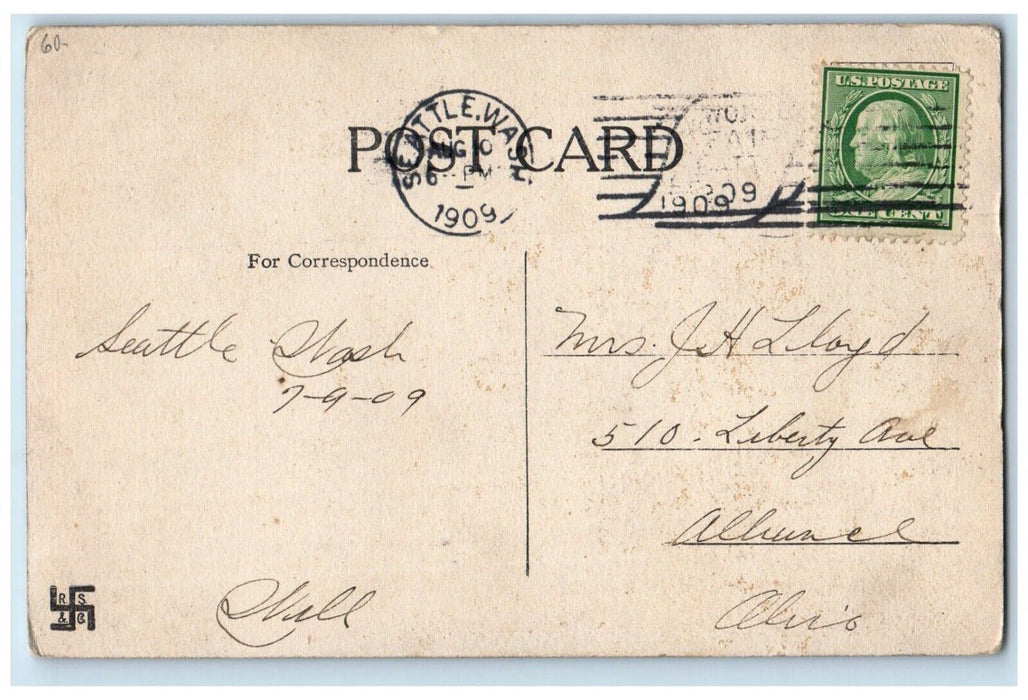 60-
U.S. POSTAGE
ONE CENT
SEATTLE, WASH.
6 - PM
1909
1909
POST CARD
For Correspondence
Seattle Wash
7-9-09
Mrs. J H Lloyd
510 - Liberty Ave
Alliance
Ohio
Will
R S
& C